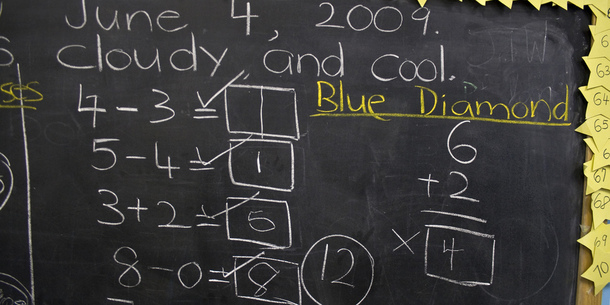 June 4, 2009.
Cloudy, and cool.
ses
Blue Diamond
4 - 3 = 1
5 - 4 = 1
3 + 2 = 5
8 - 0 = 8
12
6
+ 2
× 4
63
64
65
67
68
69
70